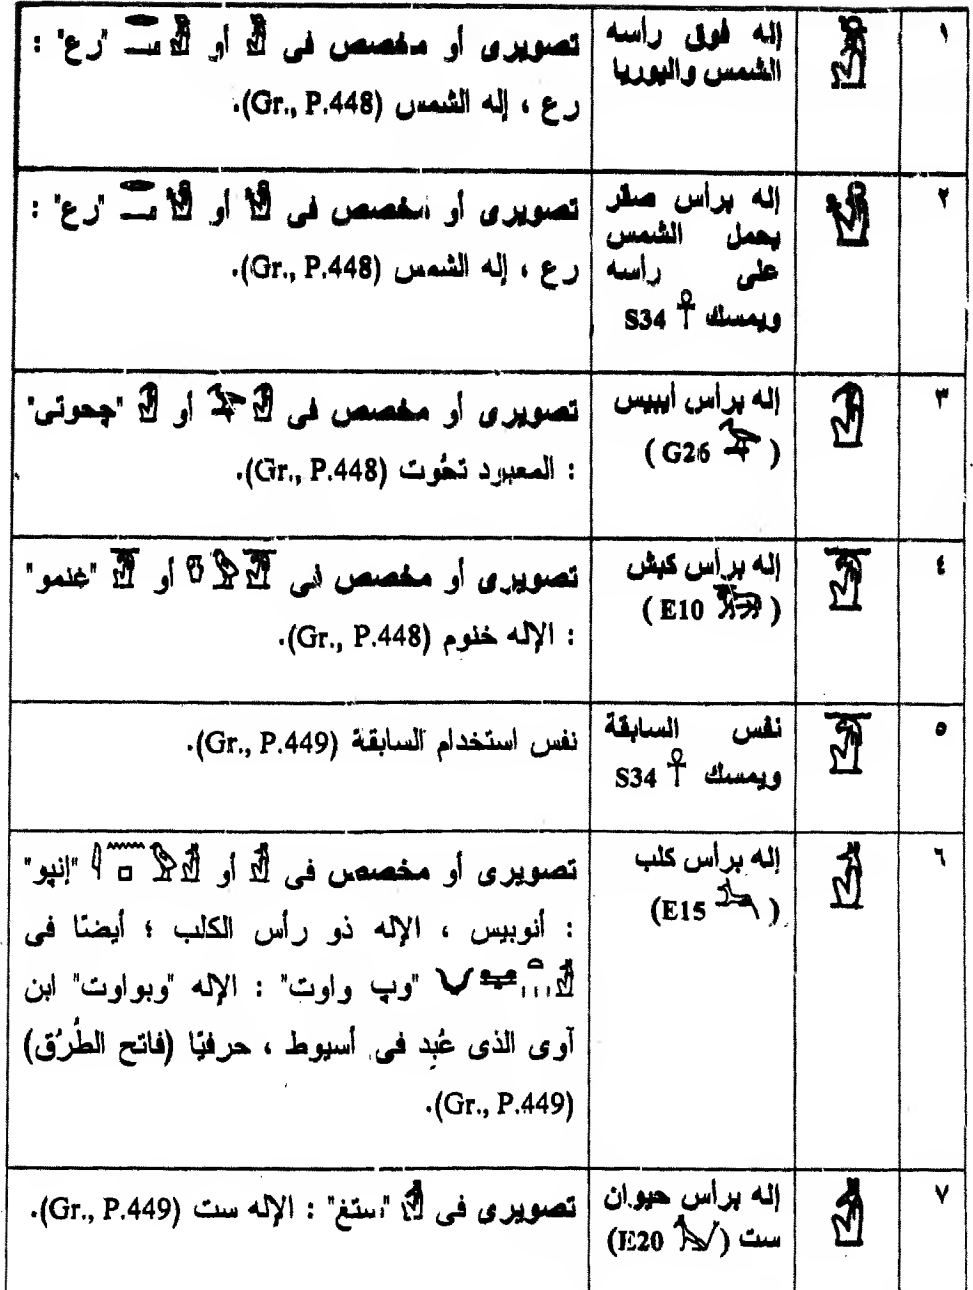 ١
إله فوق رأسه
الشمس واليوريا
تصويرى أو مخصص فى 𓁛 أو 𓂋𓂝𓁛 "رع" :
رع ، إله الشمس (Gr., P.448).
٢
إله برأس صقر
يحمل الشمس
على رأسه
ويمسك 𓋹 S34
تصويرى أو مخصص فى 𓁛 أو 𓂋𓂝𓁛 "رع" :
رع ، إله الشمس (Gr., P.448).
٣
إله برأس أيبيس
( 𓅝 G26 )
تصويرى أو مخصص فى 𓅝𓁟 أو 𓁟 "چحوتى"
: المعبود تحُوت (Gr., P.448).
٤
إله برأس كبش
( 𓃝 E10 )
تصويرى أو مخصص فى 𓎸𓅱𓁠 أو 𓁠 "غنمو"
: الإله خنوم (Gr., P.448).
٥
نفس السابقة
ويمسك 𓋹 S34
نفس استخدام السابقة (Gr., P.449).
٦
إله برأس كلب
( 𓃢 E15)
تصويرى أو مخصص فى 𓁢 أو 𓇋𓈖𓊪𓅱𓁢 "إنپو"
: أنوبيس ، الإله ذو رأس الكلب ؛ أيضًا فى
𓄋𓈐𓏏𓏥𓁢 "وپ واوت" : الإله "وبواوت" ابن
آوى الذى عُبِد فى أسيوط ، حرفيًا (فاتح الطُرُق)
(Gr., P.449).
٧
إله برأس حيوان
ست (𓃩 E20)
تصويرى فى 𓁣 "ستغ" : الإله ست (Gr., P.449).